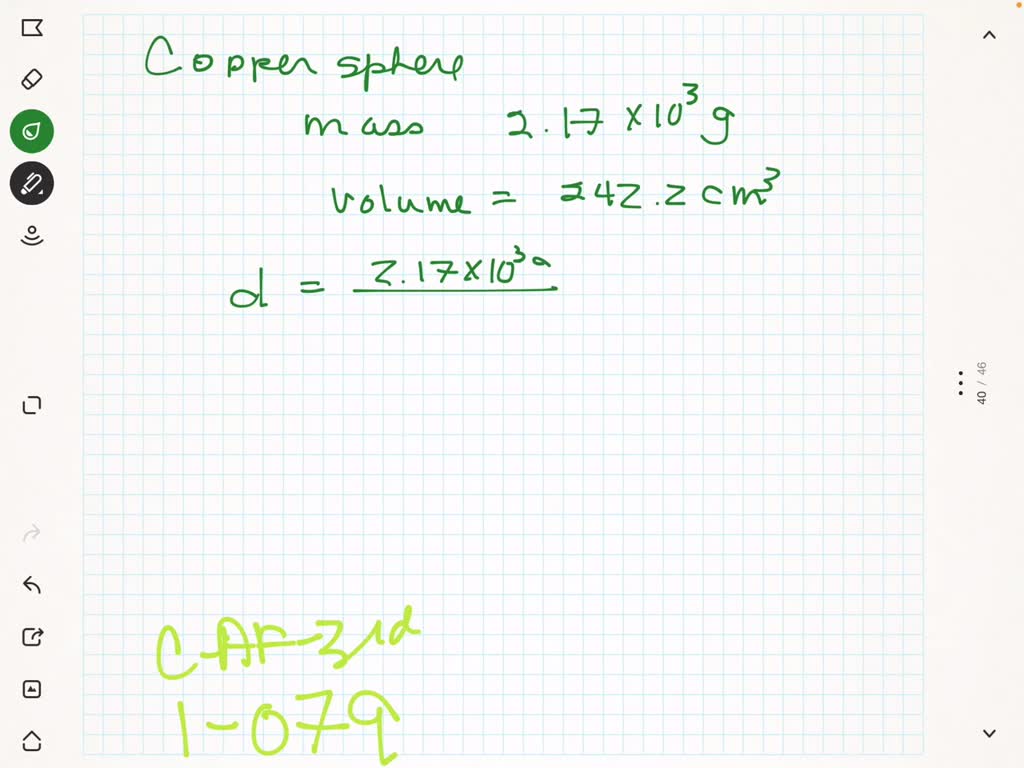 Copper sphere
mass 2.17 × 10³ g
volume = 242.2 cm³
d = 2.17 × 10³
CAF-3rd
1-079
40 / 46